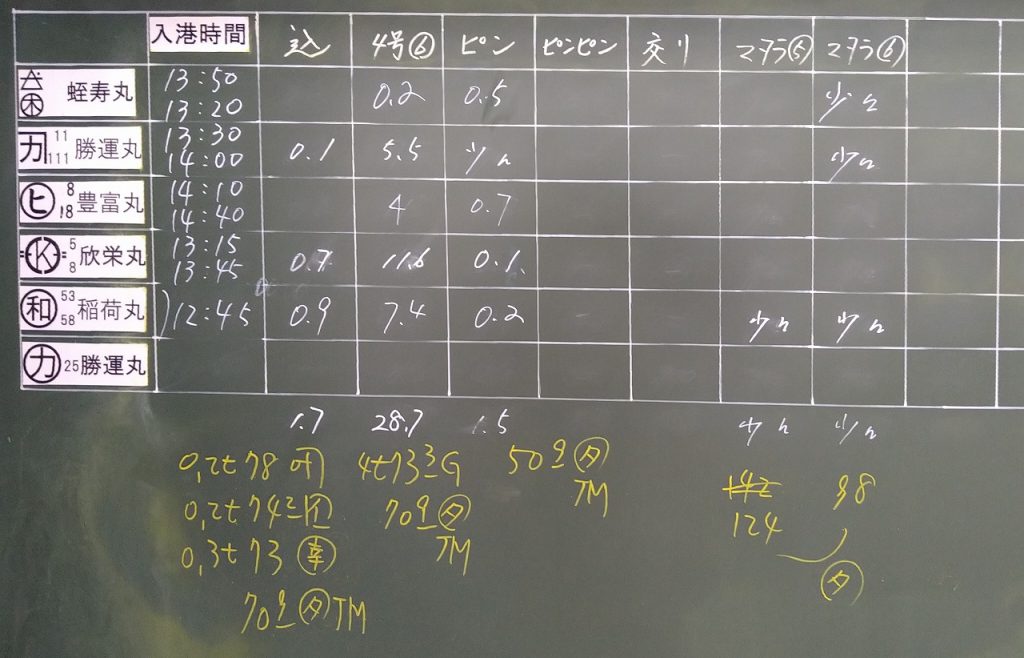 入港時間 込 4号⑥ ピン ピンピン 交り マダラ⑤ マダラ⑥
蛭寿丸 13:50 13:20 0.2 0.5 少々
カ 11 111 勝運丸 13:30 14:00 0.1 5.5 少々 少々
ヒ 8 18 豊富丸 14:10 14:40 4 0.7
K 5 8 欣栄丸 13:15 13:45 0.7 11.6 0.1
和 53 58 稲荷丸 12:45 0.9 7.4 0.2 少々 少々
カ 25 勝運丸
1.7 28.7 1.5 少々 少々
0,2t 78 4t 73 G 50 タ TM
0,2t 74 70 タ TM 124 98
0,3t 73 タ
70 タ TM